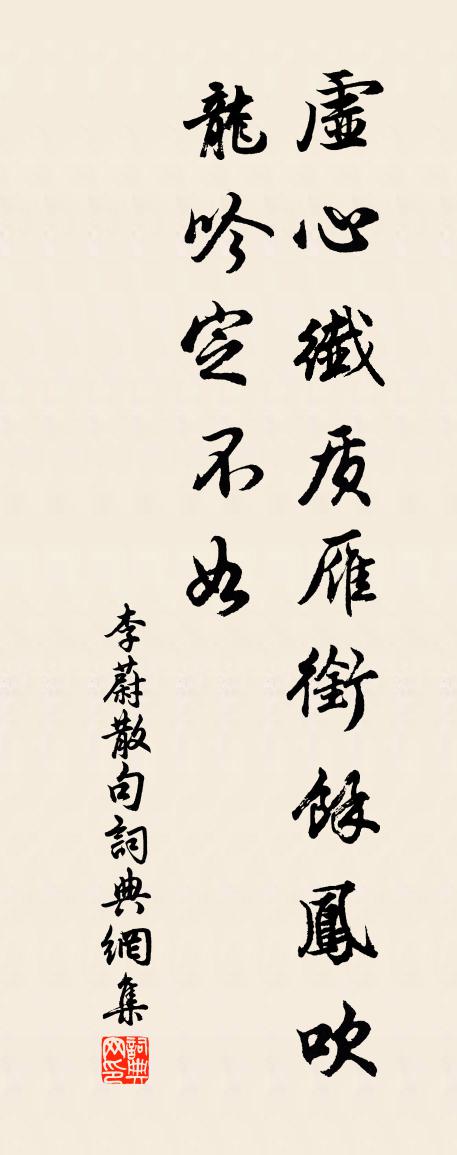 虛心纖质雁銜餘鳳吹
龍吟定不如
李蔚散句詞典網集
詞典网印